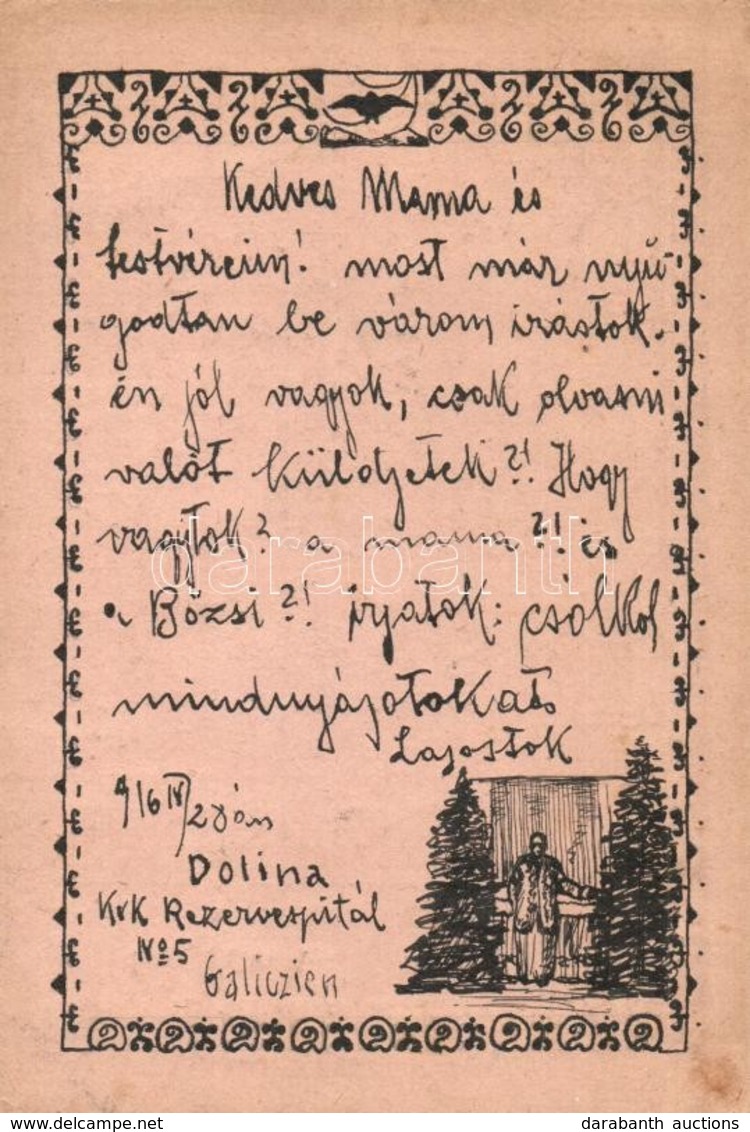 Kedves Mama és
testvéreim! most már nyu-
godtan be várom irástok.
én jól vagyok, csak olvasni
valót küldjetek?! Hogy
vagytok? a mama?! és
a Bözsi?! irjatok: csólkol
mindnyájotokat
Lajostok
916 IV/28án
Dolina
KuK Rezervespitál
No 5
Galiczien
darabanth
delcampe.net
darabanth auctions